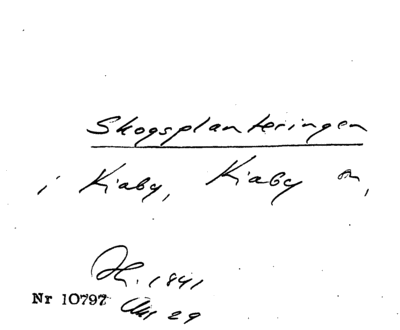 Skogsplanteringen
i Kiaby, Kiaby sn,
1841
Nr 10797
29